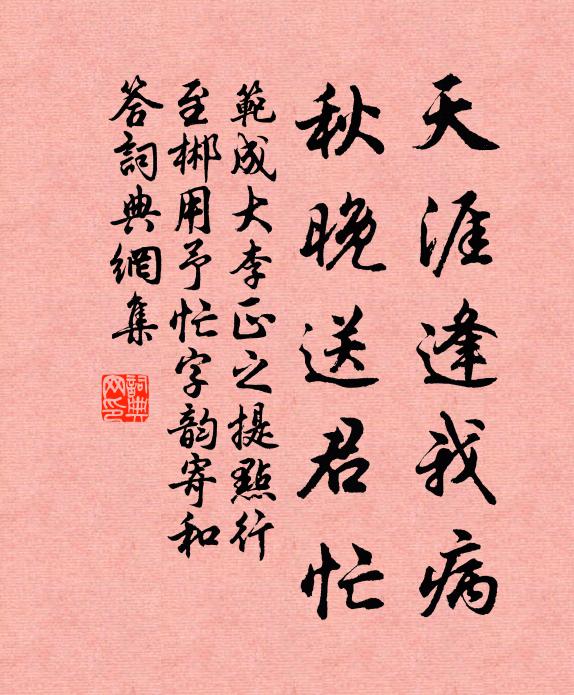 天涯逢我病
秋晚送君忙
範成大李正之提點行
至郴用予忙字韵寄和
答詞典網集
詞典网印